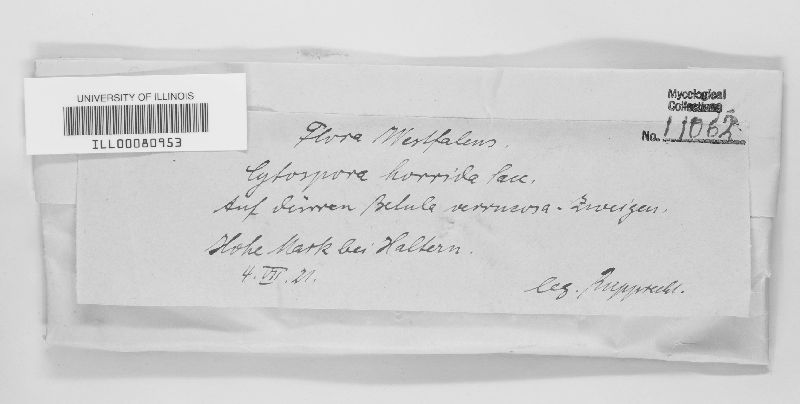 UNIVERSITY OF ILLINOIS
ILL00080953
Mycological
Collections
No. 11062
Flora Westfalens.
Cytospora horrida Sacc.
Auf dürren Betula verrucosa-Zweigen.
Hohe Mark bei Haltern.
4. VII. 21.
leg. Rupprecht.